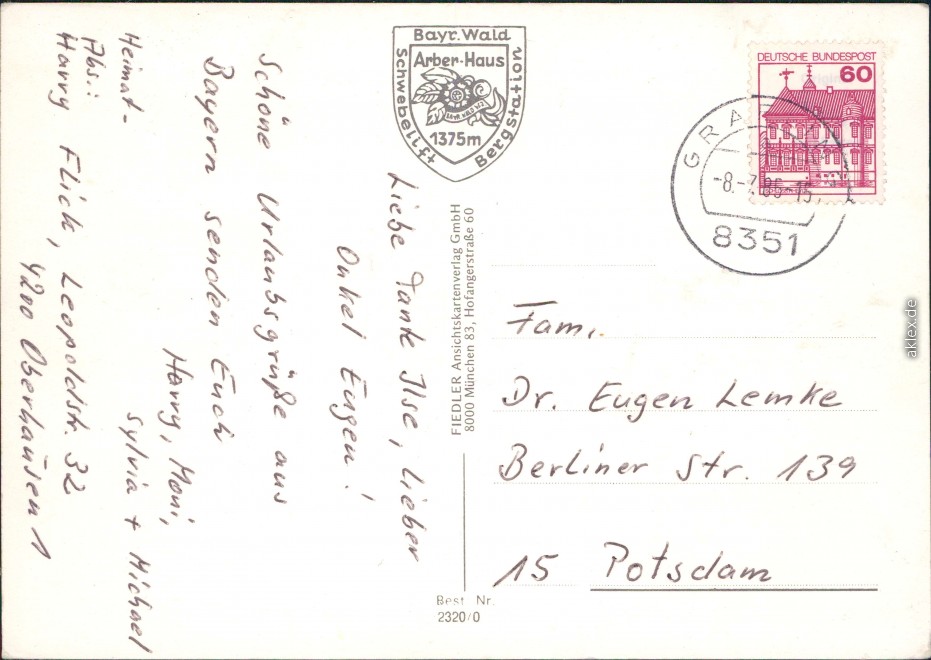 Bayr. Wald
Arber-Haus
Schwebelift
Bergstation
BAYR. WALD
1375m
Liebe Tante Ilse, lieber
Onkel Eugen!
Schöne Urlaubsgrüße aus
Bayern senden Euch
Harry, Moni,
Sylvia + Michael
Heimat-
Abs.:
Harry Flick, Leopoldstr. 32
4200 Oberhausen 1
FIEDLER Ansichtskartenverlag GmbH
8000 München 83, Hofangerstraße 60
Best. Nr.
2320/0
DEUTSCHE BUNDESPOST
60
8351
Fam.
Dr. Eugen Lemke
Berliner Str. 139
15 Potsdam
aklex.de